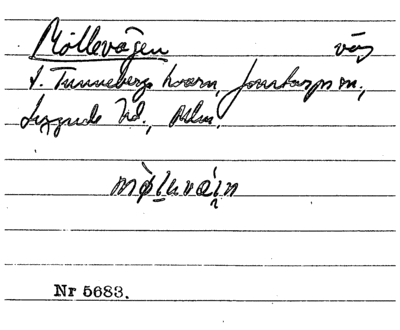 Möllevägen väg
f. Tunneberga kvarn, Jonstorps sn,
Luggude hd., Mlm.
Nr 5683.